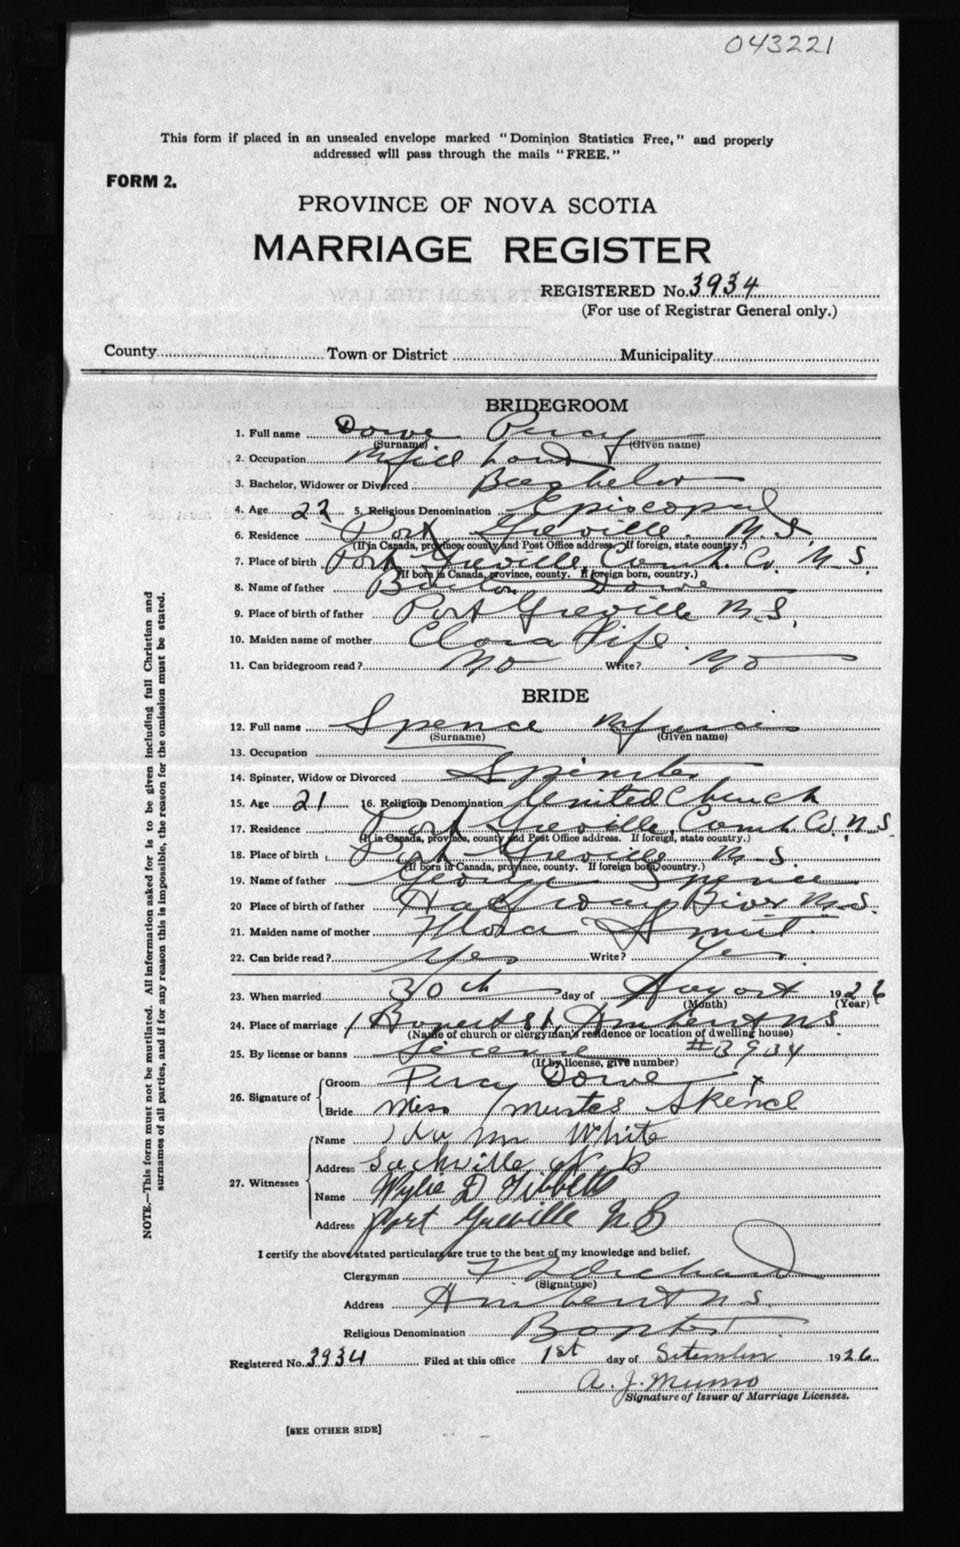 043221
This form if placed in an unsealed envelope marked "Dominion Statistics Free," and properly
addressed will pass through the mails "FREE."
FORM 2.
PROVINCE OF NOVA SCOTIA
MARRIAGE REGISTER
REGISTERED No. 3934
(For use of Registrar General only.)
County Town or District Municipality
BRIDEGROOM
1. Full name Dowe Percy
(Surname) (Given name)
2. Occupation Mill
3. Bachelor, Widower or Divorced Bachelor
4. Age 22 5. Religious Denomination Episcopal
6. Residence Port Greville. N.S.
(If in Canada, province, county and Post Office address. If foreign, state country.)
7. Place of birth Port Greville Cumb. Co. N S
(If born in Canada, province, county. If foreign born, country.)
8. Name of father Dowe
9. Place of birth of father Port Greville N.S.
10. Maiden name of mother Clara Fife.
11. Can bridegroom read? No Write? No
BRIDE
12. Full name Spence
(Surname) (Given name)
13. Occupation
14. Spinster, Widow or Divorced Spinster
15. Age 21 16. Religious Denomination United Church
17. Residence Port Greville, Cumb. Co. N.S.
(If in Canada, province, county and Post Office address. If foreign, state country.)
18. Place of birth Port Greville N.S.
(If born in Canada, province, county. If foreign born, country.)
19. Name of father George Spence
20 Place of birth of father Halfway River N.S.
21. Maiden name of mother Flora
22. Can bride read? Yes Write? Yes.
23. When married 30th day of August 1926
(Month) (Year)
24. Place of marriage Amherst N.S.
(Name of church or clergyman's residence or location of dwelling house)
25. By license or banns License #3934
(If by license, give number)
26. Signature of Groom Percy Dowe x
Bride Miss Spence
27. Witnesses Name White
Address Sackville N B
Name Wylie D Tibbetts
Address Port Greville N.S
I certify the above stated particulars are true to the best of my knowledge and belief.
Clergyman
(Signature)
Address Amherst N.S.
Religious Denomination Baptist.
Registered No. 3934 Filed at this office 1st day of Setember 1926
A. J. Munro
Signature of Issuer of Marriage Licenses.
[SEE OTHER SIDE]
NOTE.—This form must not be mutilated. All information asked for is to be given including full Christian and
surnames of all parties, and if for any reason this is impossible, the reason for the omission must be stated.